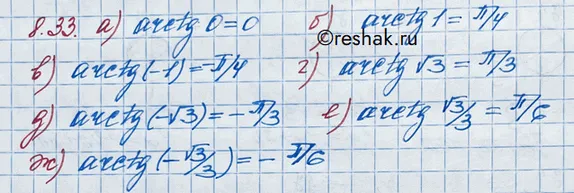 8.33. а) arctg 0 = 0 б) arctg 1 = π/4
©reshak.ru
в) arctg (-1) = -π/4 г) arctg √3 = π/3
д) arctg (-√3) = - π/3 е) arctg √3/3 = π/6
ж) arctg (-√3/3) = - π/6